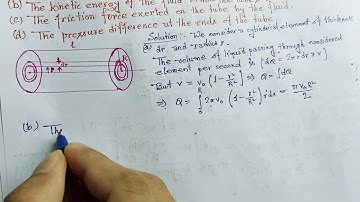 (b) The kinetic energy of the fluid
(c) The friction force exerted on the tube by the fluid.
(d) The pressure difference at the ends of the tube.
Solution:- We consider a cylindrical element of thickness
(a) dr and radius r.
The volume of liquid passing through considered
element per second is [dQ = 2πrdr × v]
But v = v₀ (1 - r²/R²) ⇒ Q = ∫dQ
⇒ Q = ∫₀ᴿ 2πv₀ (1 - r²/R²) r dr = πv₀R²/2
l
R
(b)